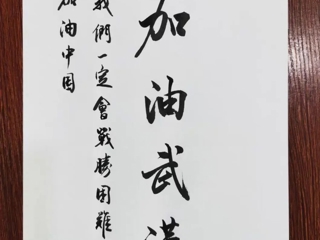 加油武漢
我們一定會戰勝困難
加油中国